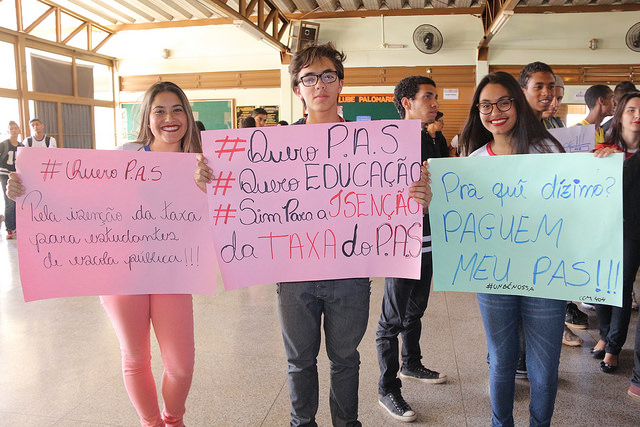 LUBE PALOMAR
# Quero P.A.S
Pela isenção da taxa
para estudantes
de escola pública!!!
# Quero P.A.S
# Quero EDUCAÇÃO
# Sim Para a ISENÇÃO
da TAXA do P.A.S
Pra quê dízimo?
PAGUEM
MEU PAS!!!
#UNBÉNOSSA
CEM 404